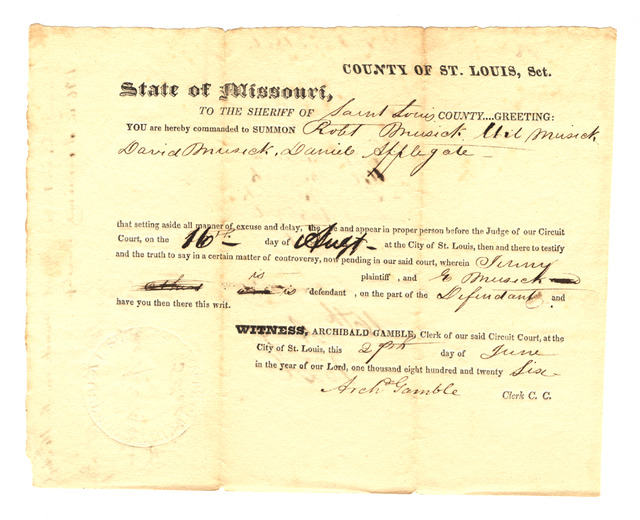 COUNTY OF ST. LOUIS, Sct.
State of Missouri,
TO THE SHERIFF OF Saint Louis COUNTY....GREETING:
YOU are hereby commanded to SUMMON Robt Musick Musick
David Musick, Daniel Applegate
that setting aside all manner of excuse and delay, and appear in proper person before the Judge of our Circuit
Court, on the 16th day of Augt at the City of St. Louis, then and there to testify
and the truth to say in a certain matter of controversy, now pending in our said court, wherein Jenny
is plaintiff, and E Musick
is defendant, on the part of the Defendant and
have you then there this writ.
WITNESS, ARCHIBALD GAMBLE, Clerk of our said Circuit Court, at the
City of St. Louis, this day of June
in the year of our Lord, one thousand eight hundred and twenty Six
Archd Gamble Clerk C. C.